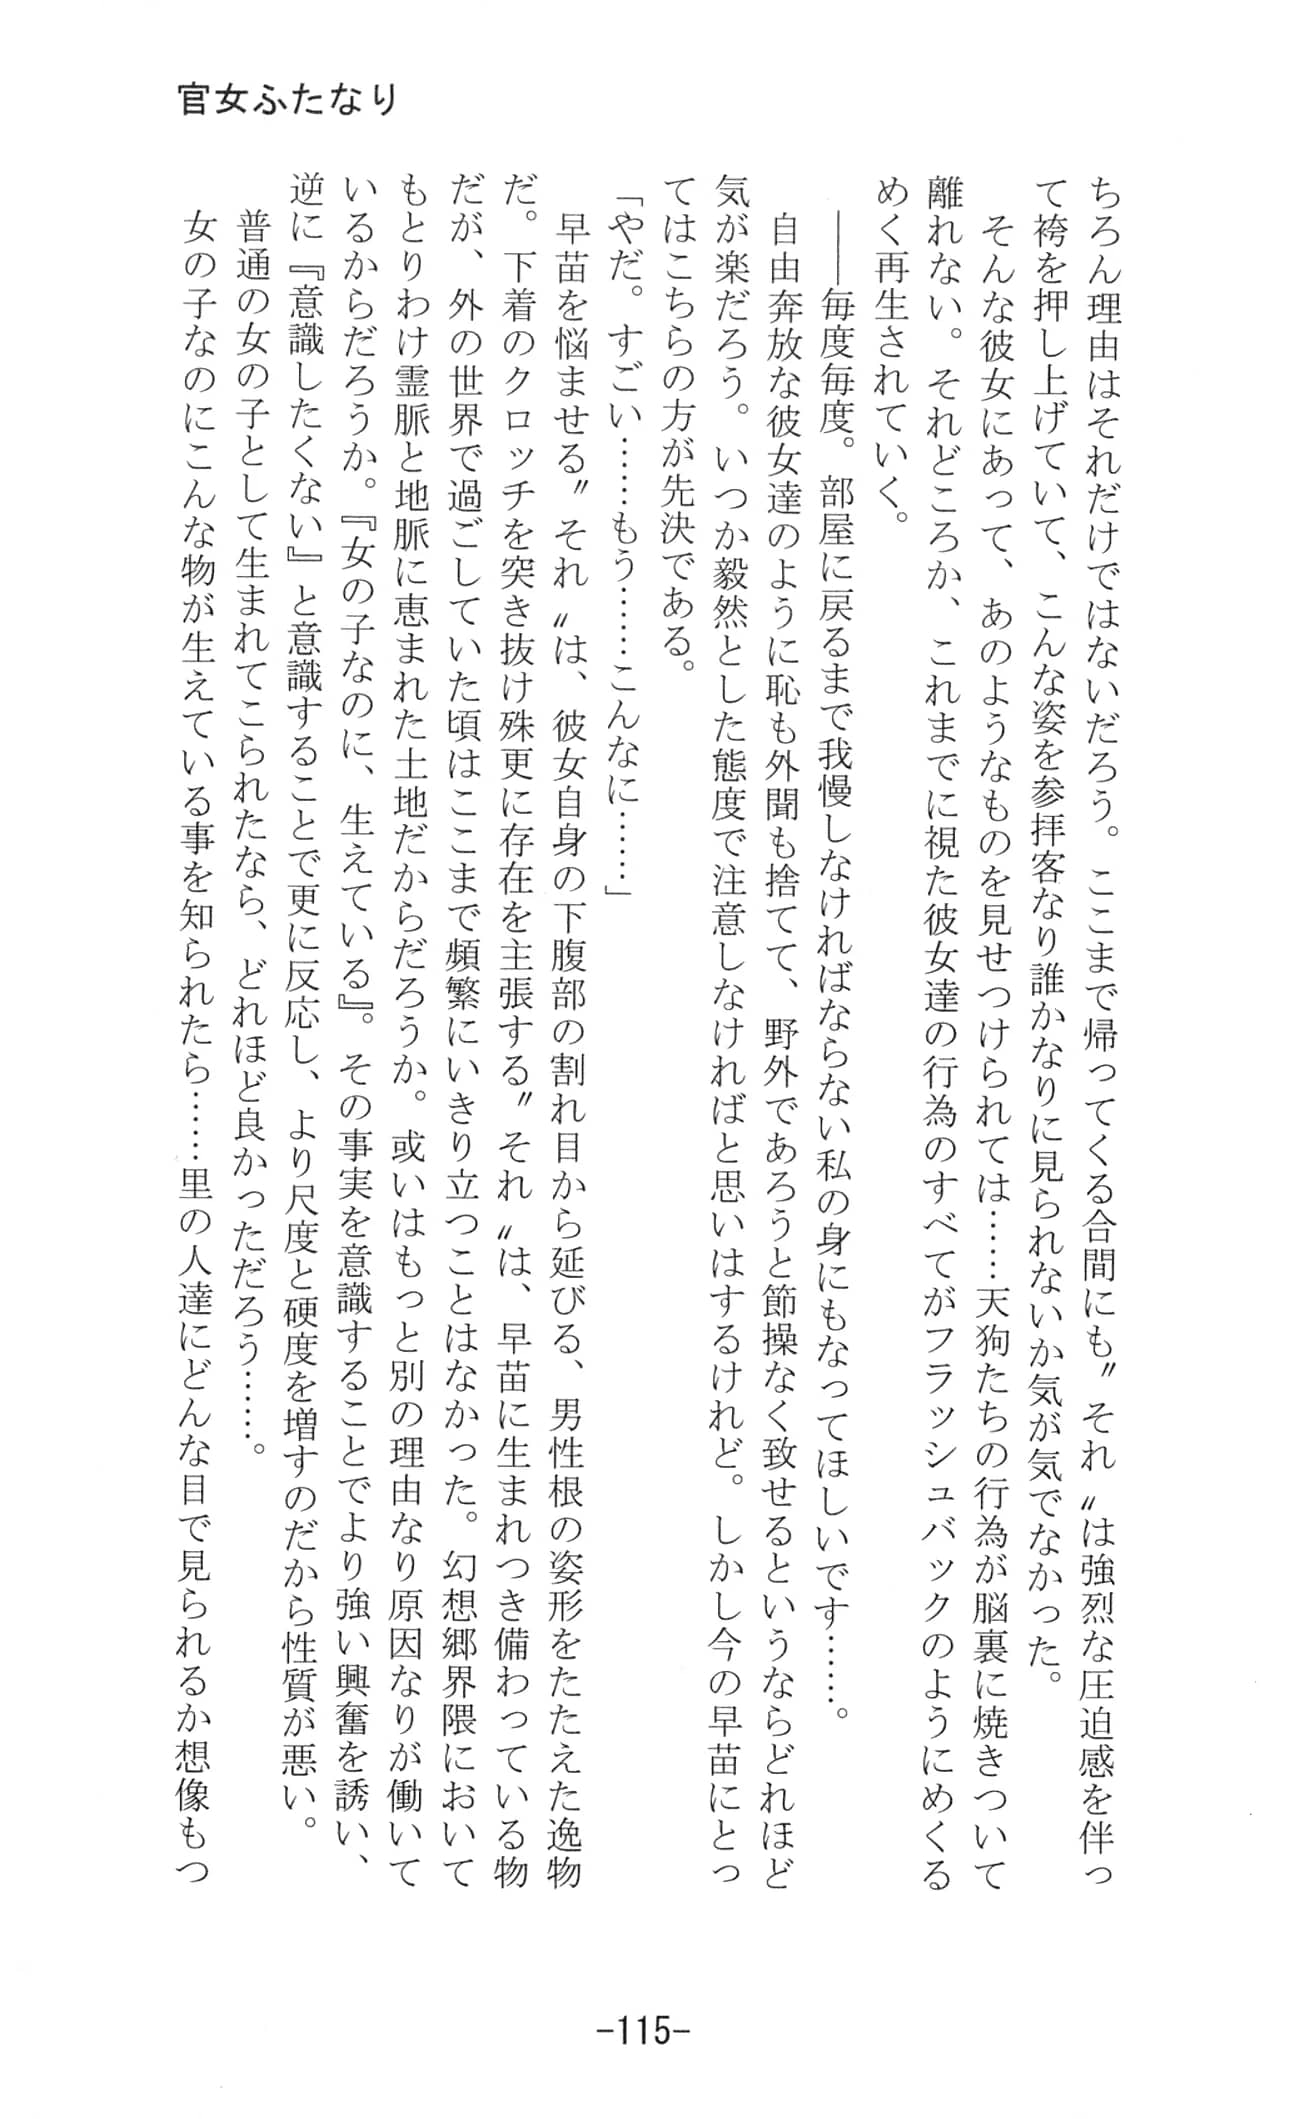 官女ふたなり
ちろん理由はそれだけではないだろう。ここまで帰ってくる合間にも〝それ〟は強烈な圧迫感を伴っ
て袴を押し上げていて、こんな姿を参拝客なり誰かなりに見られないか気が気でなかった。
そんな彼女にあって、あのようなものを見せつけられては……天狗たちの行為が脳裏に焼きついて
離れない。それどころか、これまでに視た彼女達の行為のすべてがフラッシュバックのようにめくる
めく再生されていく。
――毎度毎度。部屋に戻るまで我慢しなければならない私の身にもなってほしいです……。
自由奔放な彼女達のように恥も外聞も捨てて、野外であろうと節操なく致せるというならどれほど
気が楽だろう。いつか毅然とした態度で注意しなければと思いはするけれど。しかし今の早苗にとっ
てはこちらの方が先決である。
「やだ。すごい……もう……こんなに……」
早苗を悩ませる〝それ〟は、彼女自身の下腹部の割れ目から延びる、男性根の姿形をたたえた逸物
だ。下着のクロッチを突き抜け殊更に存在を主張する〝それ〟は、早苗に生まれつき備わっている物
だが、外の世界で過ごしていた頃はここまで頻繁にいきり立つことはなかった。幻想郷界隈において
もとりわけ霊脈と地脈に恵まれた土地だからだろうか。或いはもっと別の理由なり原因なりが働いて
いるからだろうか。『女の子なのに、生えている』。その事実を意識することでより強い興奮を誘い、
逆に『意識したくない』と意識することで更に反応し、より尺度と硬度を増すのだから性質が悪い。
普通の女の子として生まれてこられたなら、どれほど良かっただろう……。
女の子なのにこんな物が生えている事を知られたら……里の人達にどんな目で見られるか想像もつ
-115-